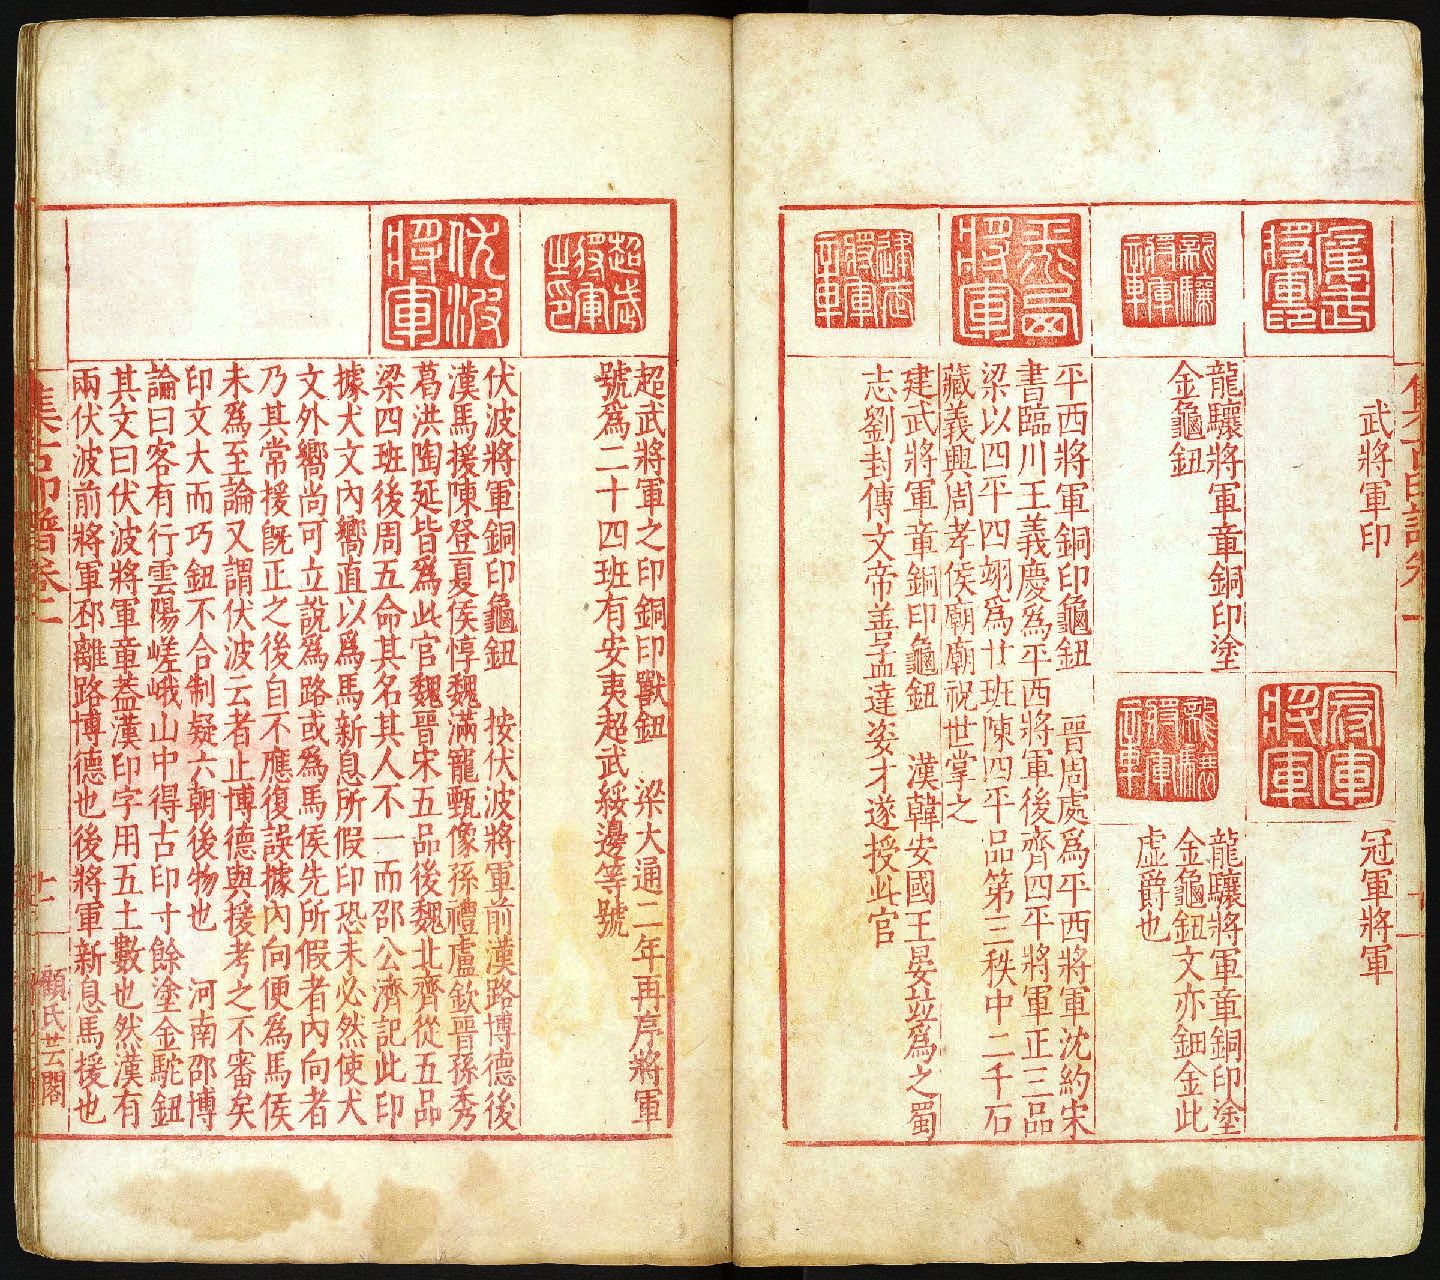 集古印譜卷一
武將軍印
冠軍將軍
龍驤將軍章銅印塗
金龜鈕
龍驤將軍章銅印塗
金龜鈕文亦鈿金此
虛爵也
平西將軍銅印龜鈕 晉周處爲平西將軍沈約宋
書臨川王義慶爲平西將軍後齊四平將軍正三品
梁以四平四翊爲廿班陳四平品第三秩中二千石
藏義興周孝侯廟廟祝世掌之
建武將軍章銅印龜鈕 漢韓安國王晏竝爲之蜀
志劉封傳文帝善孟達姿才遂授此官
龍驤將軍章
平西將軍
建武將軍章
超武將軍之印
超武將軍之印銅印獸鈕 梁大通二年再序將軍
號爲二十四班有安夷超武綏邊等號
伏波將軍
伏波將軍銅印龜鈕 按伏波將軍前漢路博德後
漢馬援陳登夏侯惇魏滿寵甄像孫禮盧欽晉孫秀
葛洪陶延皆爲此官魏晉宋五品後魏北齊從五品
梁四班後周五命其名其人不一而邵公濟記此印
據犬文內嚮直以爲馬新息所假印恐未必然使犬
文外嚮尚可立說爲路或爲馬侯先所假者內向者
乃其常援既正之後自不應復誤據內向便爲馬侯
未爲至論又謂伏波云者止博德與援考之不審矣
印文大而巧鈕不合制疑六朝後物也 河南邵博
論曰客有行雲陽嵯峨山中得古印寸餘塗金駝鈕
其文曰伏波將軍章蓋漢印字用五土數也然漢有
兩伏波前將軍邳離路博德也後將軍新息馬援也
集古印譜卷一
廿一
顧氏芸閣